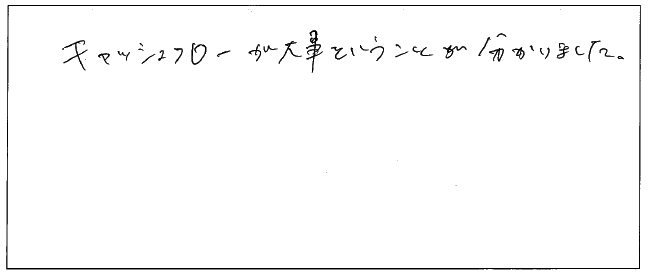 キャッシュフローが大事ということが分かりました。